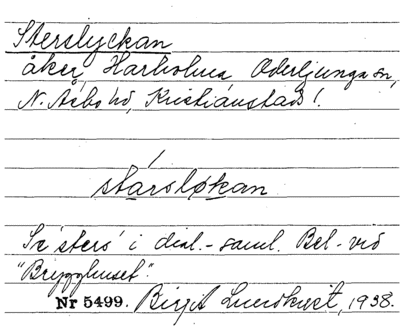 Sterslyckan
åker, Harholma Oderljunga sn,
N. Åsbo hd, Kristianstads l.
stársløkan
Se 'sters' i dial.-saml. Bel. vid
"Brygghuset".
Nr 5499. Birgit Lundkvist, 1938.